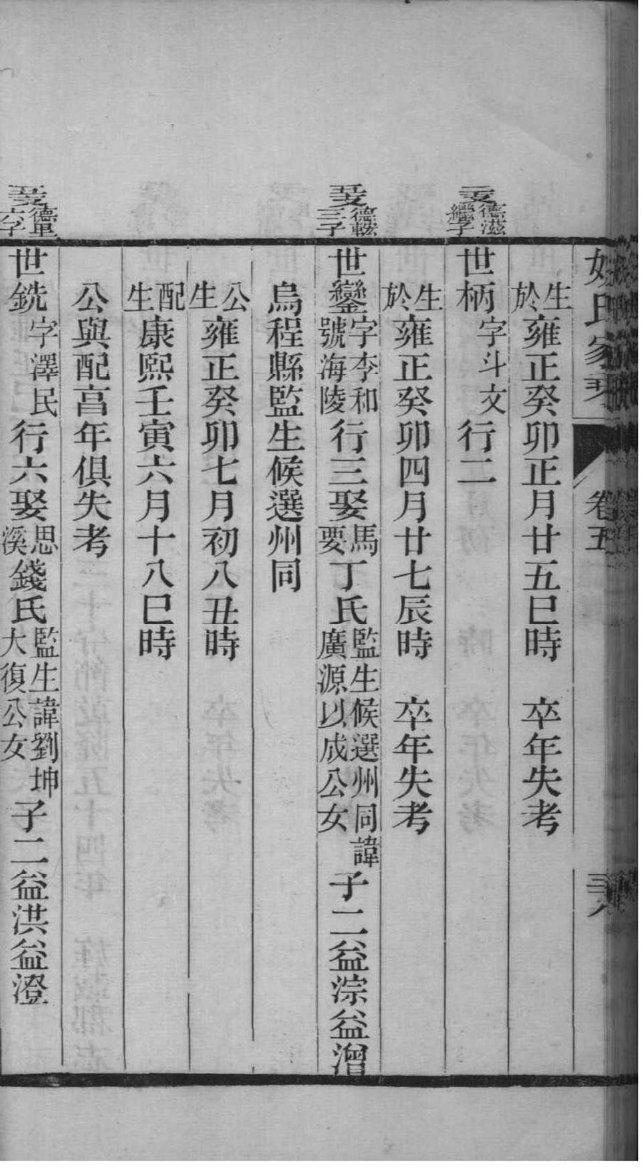 姚氏家乘 卷五 三八
生於雍正癸卯正月廿五巳時 卒年失考
德滋繼子
世柄字斗文行二
生於雍正癸卯四月廿七辰時 卒年失考
德較三子
世鑾字李和號海陵行三娶馬要丁氏監生候選州同諱廣源以成公女子二益淙益潧
烏程縣監生候選州同
公生雍正癸卯七月初八丑時
配生康熙壬寅六月十八巳時
公與配亯年俱失考
六子
世銑字澤民行六娶思溪錢氏監生諱劉坤大復公女子二益洪益澄